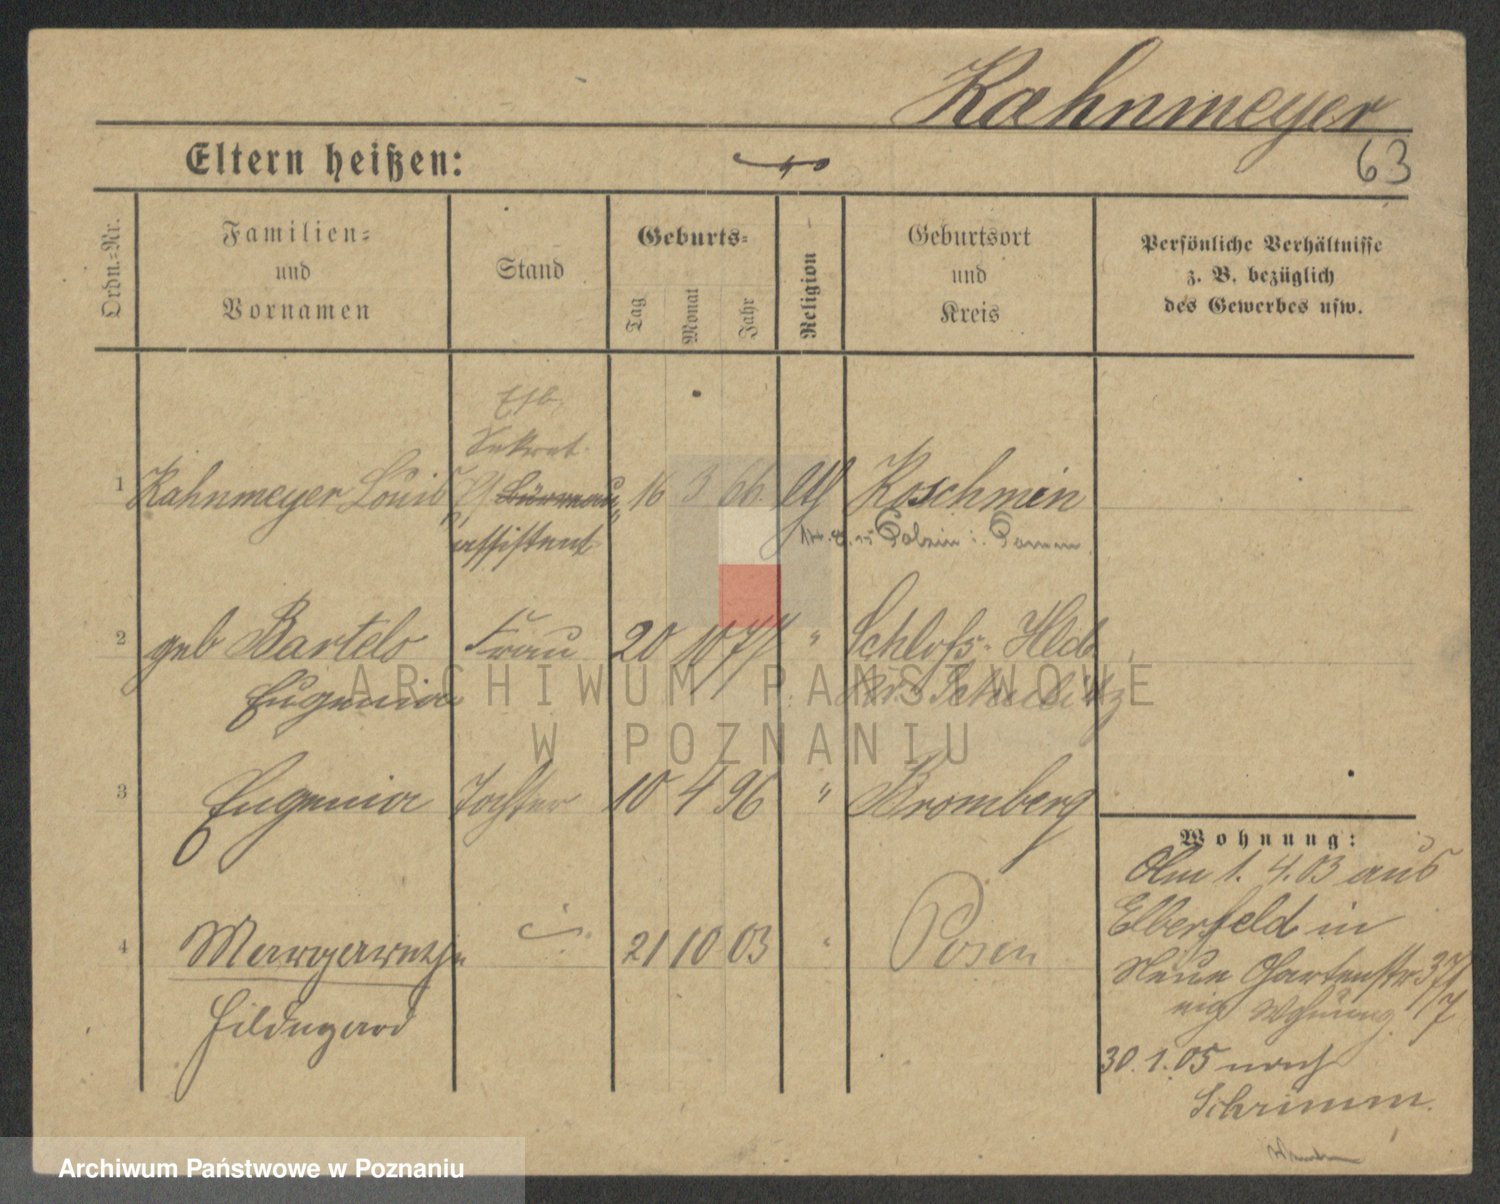 Kahnmeyer
Eltern heißen:
63
Ordn.=Nr.
Familien=
und
Vornamen
Stand
Geburts=
Tag
Monat
Jahr
Religion
Geburtsort
und
Kreis
Persönliche Verhältnisse
z. B. bezüglich
des Gewerbes usw.
Esb.
Sekret.
1 Kahnmeyer Louis Büreau 16 3 66 Koschmin
assistent
2 geb Bartels Frau 20 10 77 " Schloss- Hld
Eugenia
3 Eugenia Tochter 10 4 96 " Bromberg
Wohnung:
Am 1. 4. 03 aus
Elberfeld in
4 Margarethe 21 10 03 " Posen
Neue Gartenstr 37
Hildegard
eig Wohnung
30. 1. 05 nach
Schrimm.
ARCHIWUM PAŃSTWOWE
W POZNANIU
Archiwum Państwowe w Poznaniu